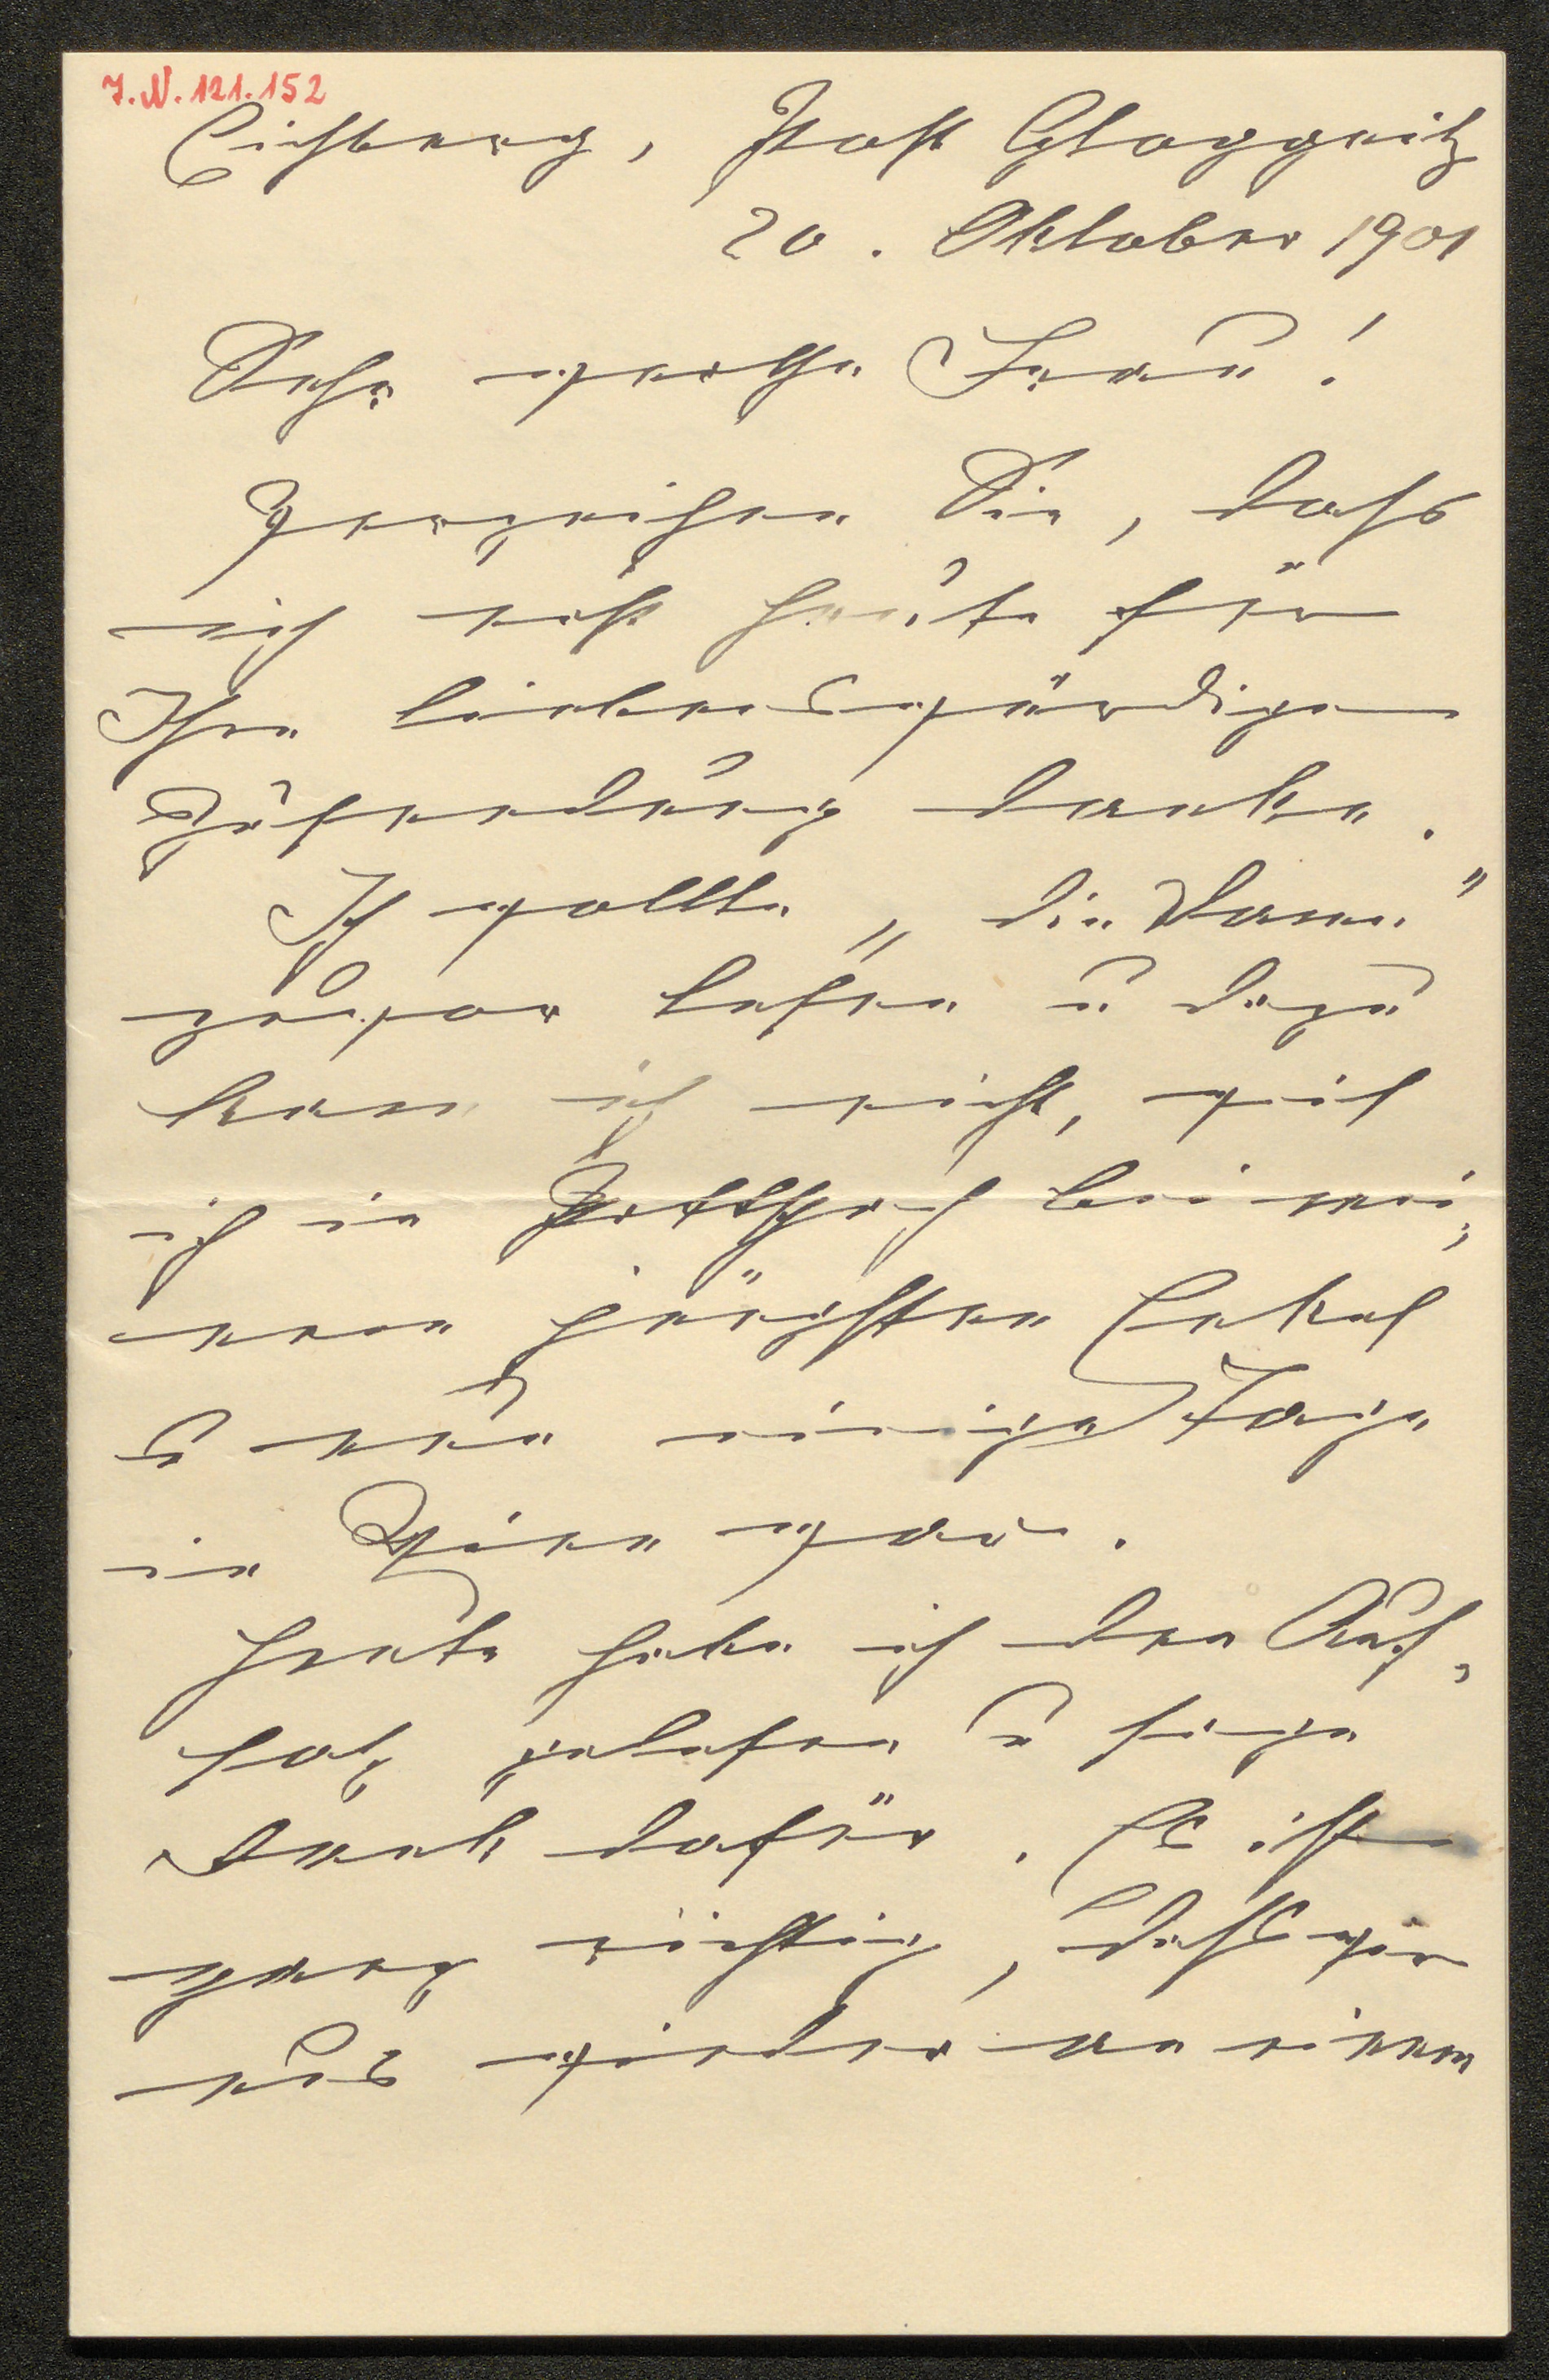 J.N. 121.152
Eichberg, Post Gloggnitz
20. Oktober 1901
Sehr werthe Frau!
Verzeihen Sie, dass
ich erst heute für
Ihre liebenswürdige
Zusendung danke.
Ich wollte „die Dame"
zuvor lesen u dazu
kam ich nicht, weil
ich in Pottschach bei mei-
nem jüngsten Enkel
u nun einige Tage
in Wien war.
Heute habe ich den Auf-
satz gelesen u sage
Dank dafür. Es ist
ganz richtig, dass wir
uns wieder an einem